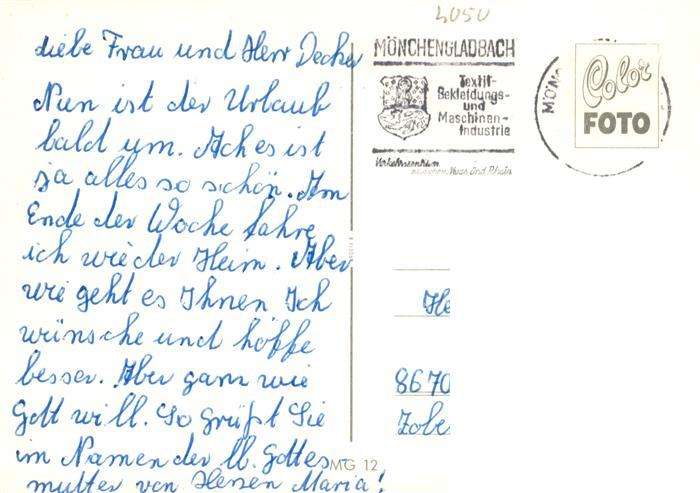 liebe Frau und Herr Decker
Nun ist der Urlaub
bald um. Ach es ist
ja alles so schön. Am
Ende der Woche fahre
ich wieder Heim. Aber
wie geht es Ihnen Ich
wünsche und hoffe
besser. Aber ganz wie
Gott will. So grüßt Sie
im Namen der lb. Gottes
mutter von Herzen Maria!
MG 12
4050
MÖNCHENGLADBACH
Textil-
Bekleidungs-
und
Maschinen-
Industrie
Verkehrszentrum
zwischen Maas und Rhein
MÖN
Color
FOTO
He
8670
Zobe